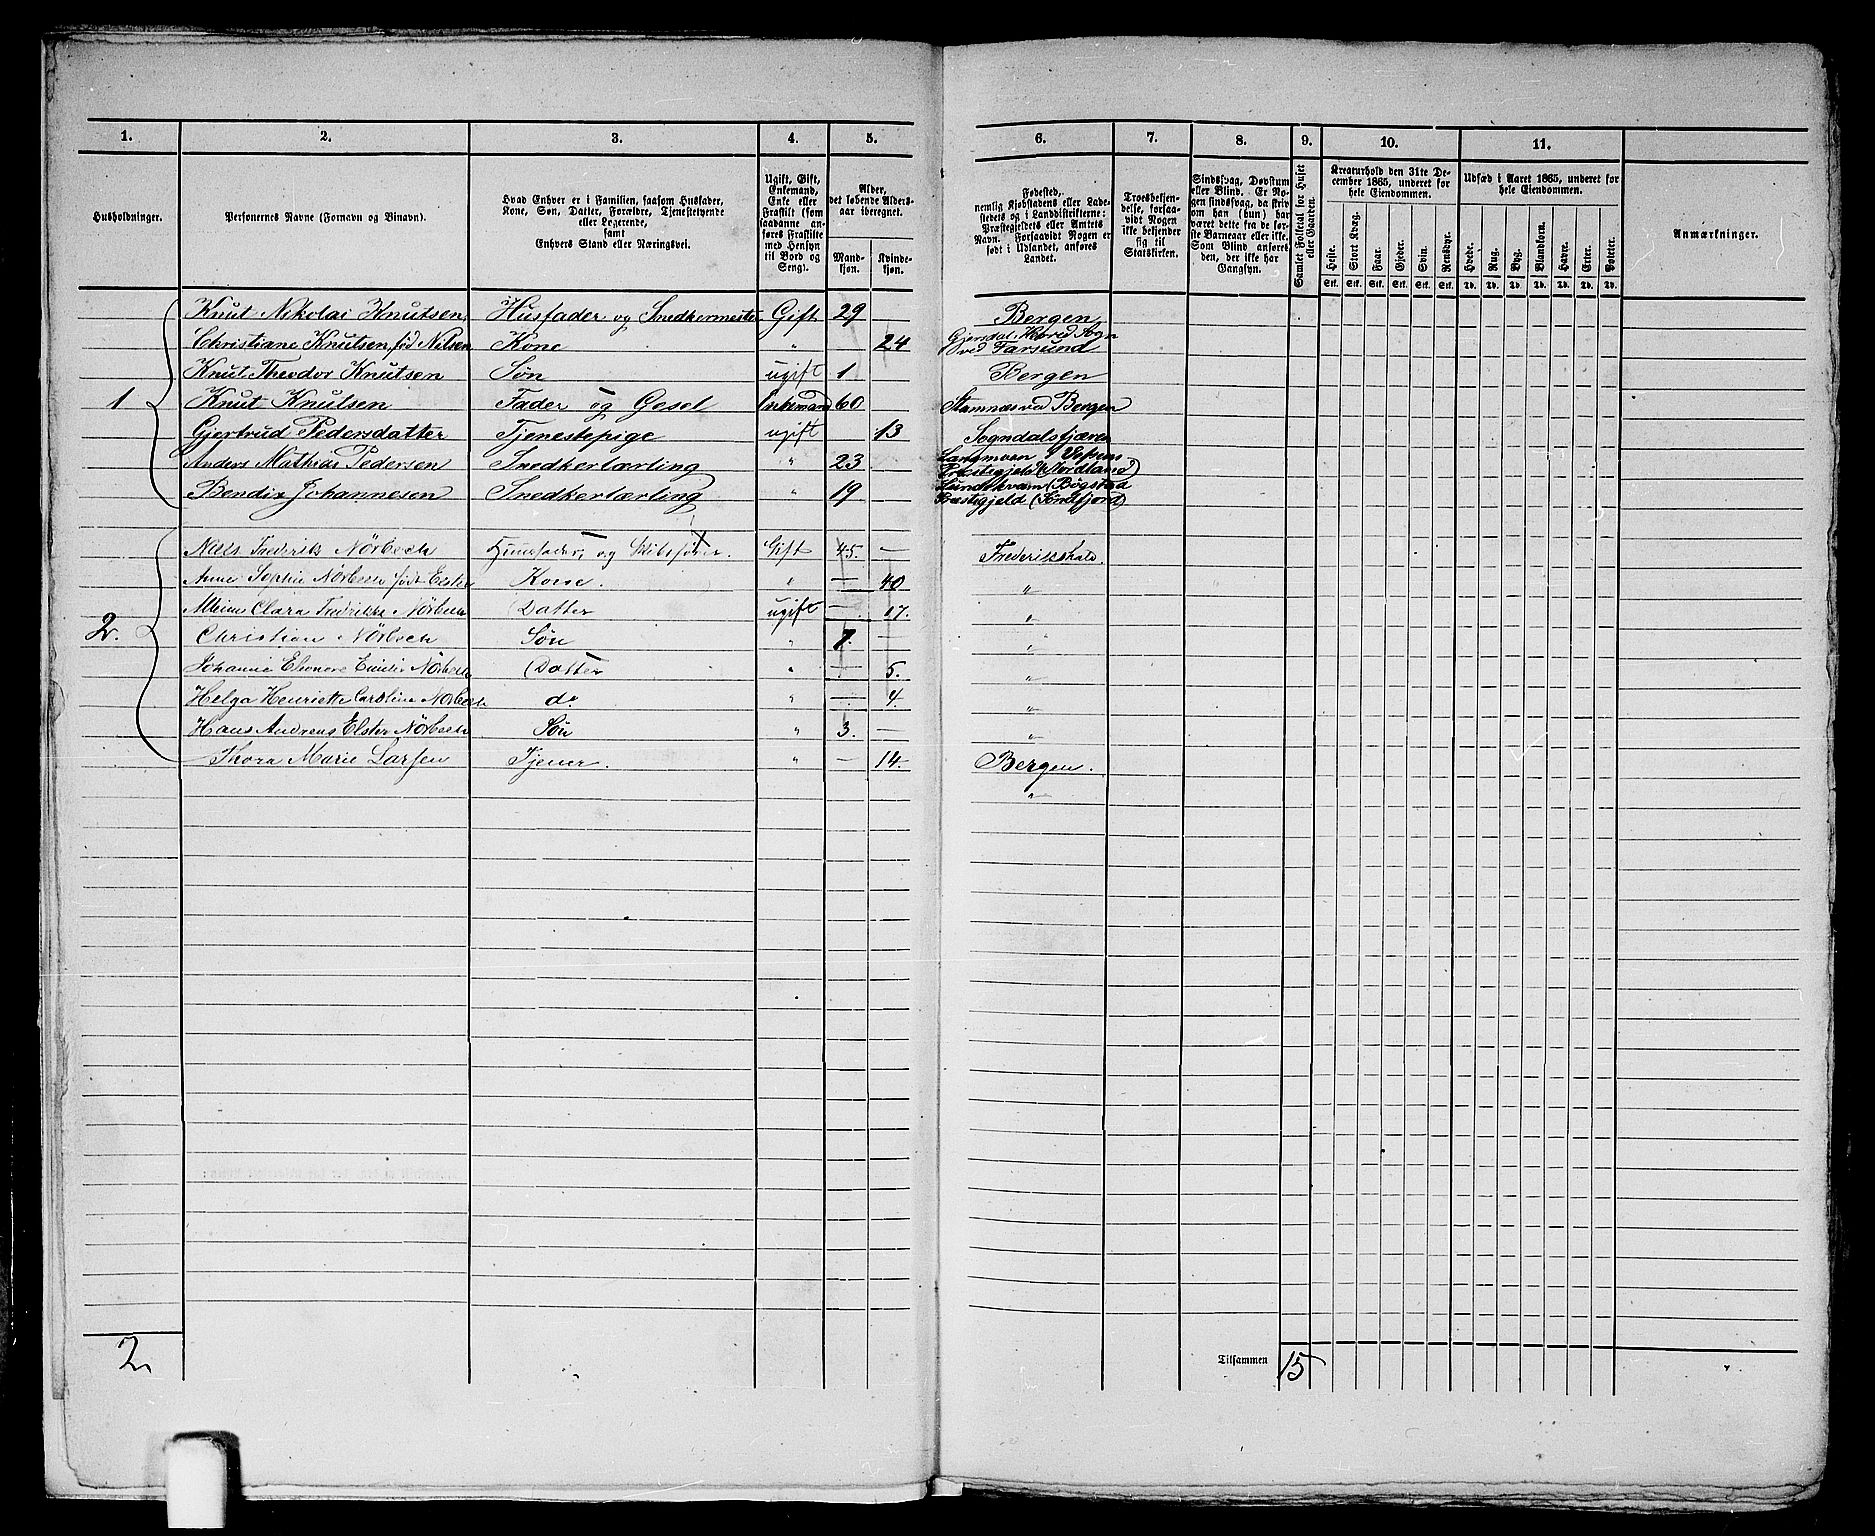 1. 2. 3. 4. 5. 6. 7. 8. 9. 10. 11.
Husholdninger.
Personernes Navne (Fornavn og Binavn).
Hvad Enhver er i Familien, saasom Husfader,
Kone, Søn, Datter, Forældre, Tjenestetyende
eller Logerende,
samt
Enhvers Stand eller Næringsvei.
Ugift, Gift,
Enkemand,
Enke eller
Fraskilt (som
saadanne an-
føres Fraskilte
med Hensyn
til Bord og
Seng).
Alder,
det løbende Alders-
aar iberegnet.
Mand-
kjøn.
Kvinde-
kjøn.
Fødested,
nemlig Kjøbstadens eller Lade-
stedets og i Landdistrikterne:
Præstegjeldets eller Amtets
Navn. Forsaavidt Nogen er
født i Udlandet, anføres
Landet.
Troesbekjen-
delse, forsaa-
vidt Nogen
ikke bekjender
sig til
Statskirken.
Sindssvag, Døvstum
eller Blind. Er No-
gen sindssvag, da skriv
om han (hun) har
været dette fra de før-
ste Barneaar eller ikke.
Som Blind anføres
den, der ikke har
Gangsyn.
Samlet Folketal for Huset
eller Gaarden.
Kreaturhold den 31te De-
cember 1865, underet for
hele Eiendommen.
Heste. Stort Kvæg. Faar. Gjeder. Svin. Rensdyr.
Stk. Stk. Stk. Stk. Stk. Stk.
Udsæd i Aaret 1865, underet for
hele Eiendommen.
Hvede. Rug. Byg. Blandkorn. Havre. Erter. Poteter.
Td. Td. Td. Td. Td. Td. Td.
Anmærkninger.
Knut Nikolai Knutsen Husfader og Snedkermester Gift 29 Bergen
Christiane Knutsen, fød Nilsen Kone " 24 Gjendal, Sogn
ved Farsund
Knut Theodor Knutsen Søn ugift 1 Bergen
1 Knut Knutsen Fader og Gesel Enkemand 60 Stamnæs ved Bergen
Gjertrud Pedersdatter Tjenestepige ugift 13 Sogndalsfjæren
Anders Mathias Pedersen Snedkerlærling " 23 Langmoen i Vefsens
Præstegjeld (Nordland)
Bendix Johannesen Snedkerlærling " 19 (Bøgstad
Præstegjeld (Søndfjord)
Niels Frederik Nörbech Huusfader, og Skibsfører. Gift 45. — Frederikshald.
Anne Sophie Nörbech født Elster Kone. " — 40 "
Clara Fredrikke Nörbech Datter ugift — 17. "
2. Christian Nörbech Søn " 7. — "
Johanne Eleonore Emilie Nörbech Datter " — 5. "
Helga Henriette Caroline Nörbech do " — 4. "
Hans Andreas Elster Nörbech Søn " 3. — "
Thora Marie Larsen Tjener. " — 14. Bergen.
"
2
Tilsammen 15